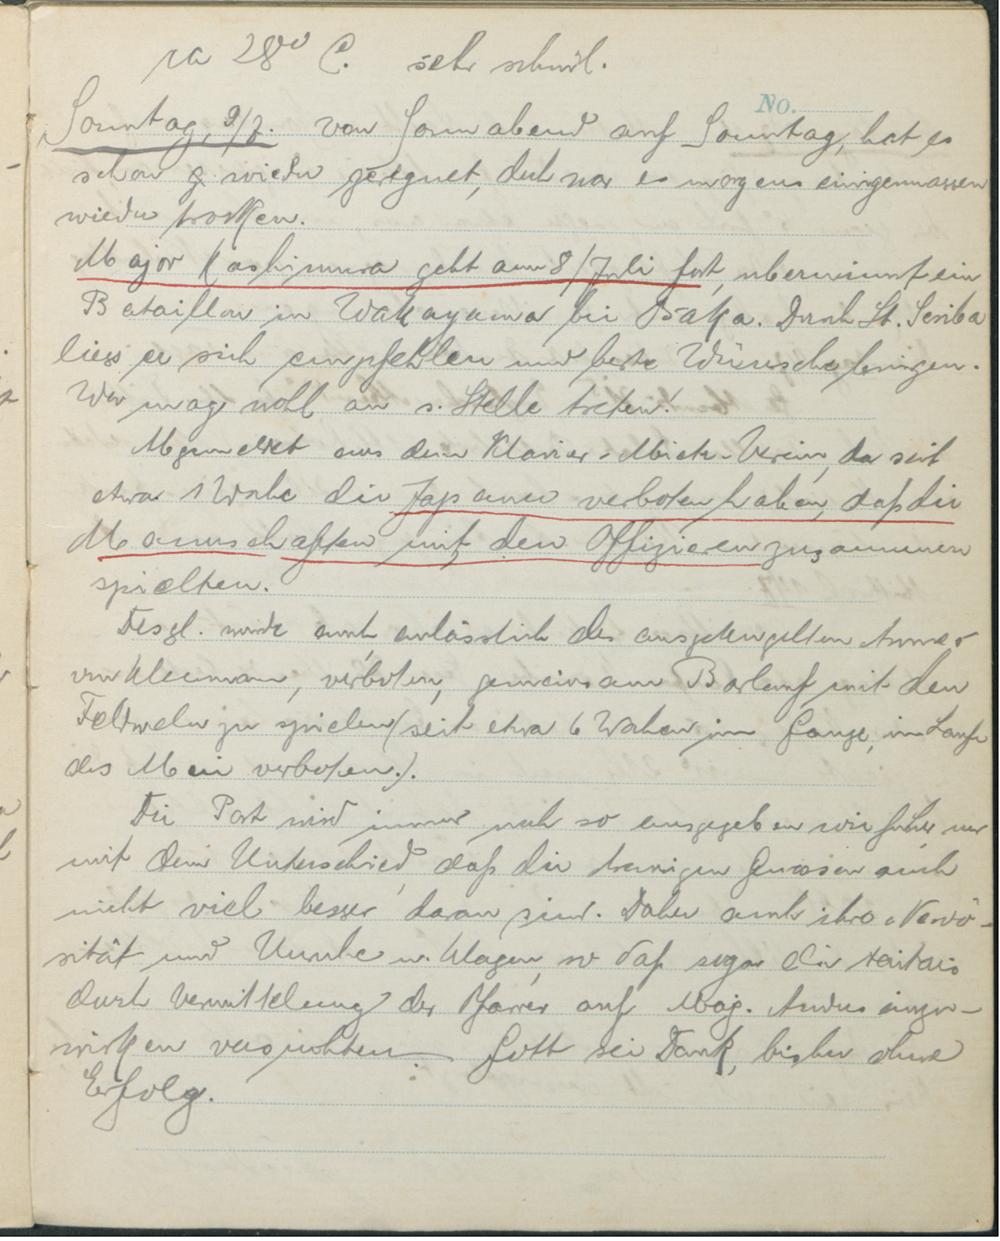 ca 28° C. sehr schwül.
No.
Sonntag, 9/7. von Sonnabend auf Sonntag, hat es
schon wieder geregnet, doch war es morgens einigermassen
wieder trocken.
Major Kashimura geht am 8/Juli fort, übernimmt ein
Bataillon in Wakayama bei Osaka. Durch Lt. Seriba
liess er sich empfehlen und beste Wünsche bringen.
Wer mag wohl an s. Stelle treten!
Abgemeldet aus dem Klavier-Miets-Verein, da seit
etwa 1 Woche die Japaner verboten haben, daß die
Mannschaften mit den Offizieren zusammen
spielten.
Desgl. wurde auch anlässlich des
von Klemann, verboten, gemeinsam Barlauf mit den
Feldwebeln zu spielen (seit etwa 6 Wochen im Gange, im Laufe
des Mai verboten.).
Die Post wird immer noch so ausgegeben wie früher nur
mit dem Unterschied, daß die hiesigen Genossen auch
nicht viel besser daran sind. Daher auch ihre Nervo-
sität und Unruhe u. Klagen, so daß sogar die
durch Vermittelung der Pfarrer auf Maj. einzu-
wirken versuchten Gott sei Dank, bisher ohne
Erfolg.